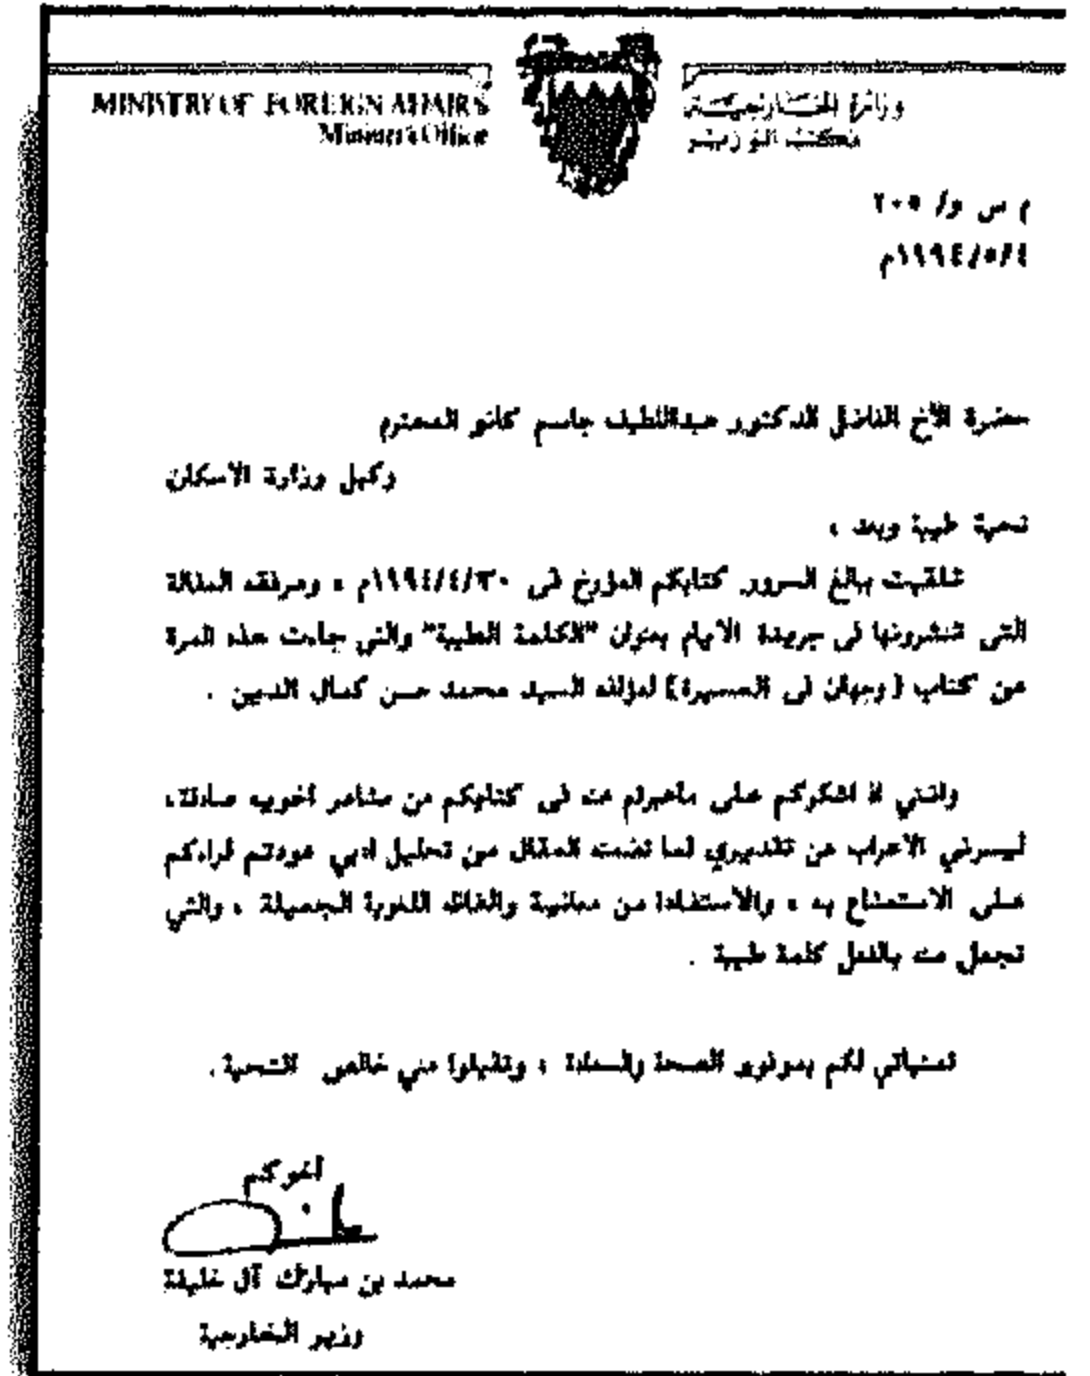 MINISTRY OF FOREIGN AFFAIRS
Minister's Office
وزارة الخارجية
مكتب الوزير
م س و/ ٢٠٥
١٩٩٤/٥/٤م
حضرة الأخ الفاضل الدكتور عبداللطيف جاسم كانو المحترم
وكيل وزارة الاسكان
تحية طيبة وبعد ،
تلقيت ببالغ السرور كتابكم المؤرخ فى ١٩٩٤/٤/٣٠م ، ومرفقه المقالة
التى تنشرونها فى جريدة الايام بعنوان "الكلمة الطيبة" والتى جاءت هذه المرة
عن كتاب (وجهان فى المسيرة) لمؤلفه السيد محمد حسن كمال الدين .
واننى اذ اشكركم على ماعبرتم عنه فى كتابكم من مشاعر اخويه صادقة،
ليسرني الأعراب عن تقديري لما تضمنه المقال من تحليل ادبي عودتم قراءكم
على الاستمتاع به ، والاستفادة من معانية والفاظه اللغوية الجميلة ، والتي
تجعل منه بالفعل كلمة طيبة .
تمنياتي لكم بموفور الصحة والسعادة ، وتقبلوا مني خالص التحية .
أخوكم
محمد بن مبارك آل خليفة
وزير الخارجية